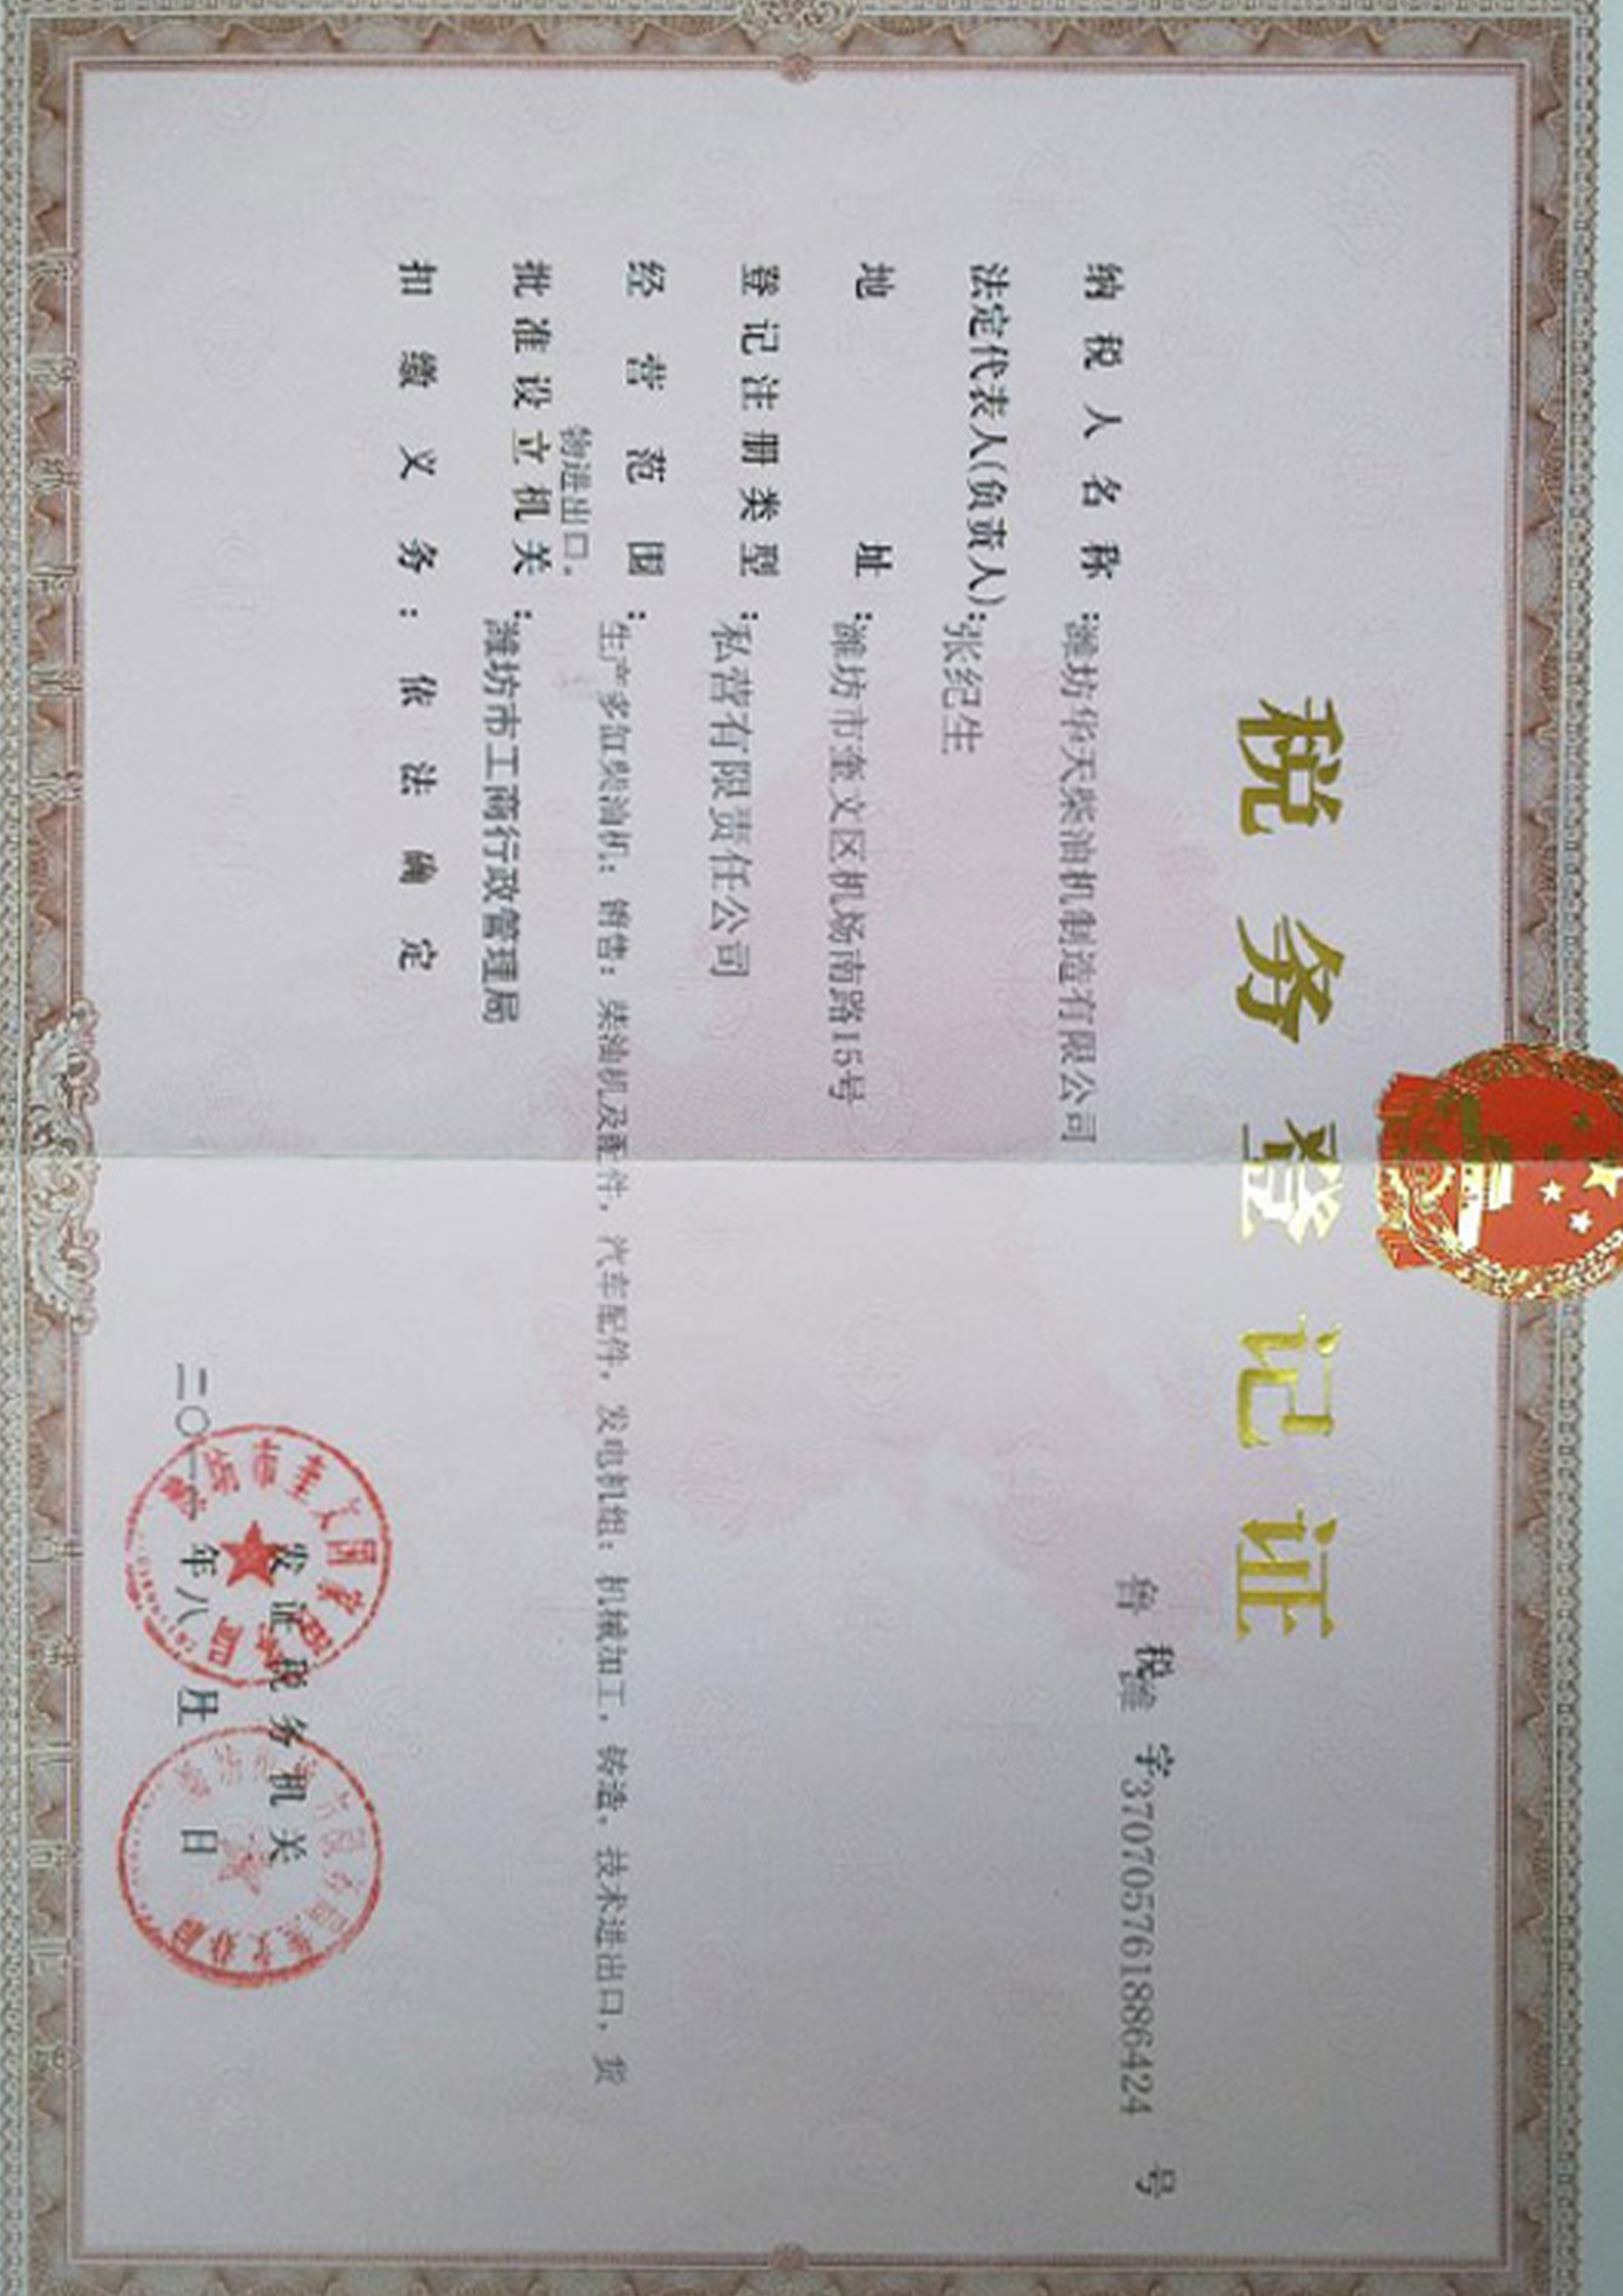 税务登记证
鲁税潍字370705761886424号
纳税人名称:潍坊华天柴油机制造有限公司
法定代表人(负责人):张纪生
地址:潍坊市奎文区机场南路15号
登记注册类型:私营有限责任公司
经营范围:生产多缸柴油机;销售:柴油机及配件,汽车配件,发电机组;机械加工,铸造,技术进出口,货
物进出口。
批准设立机关:潍坊市工商行政管理局
扣缴义务:依法确定
发证税务机关
年八月 日